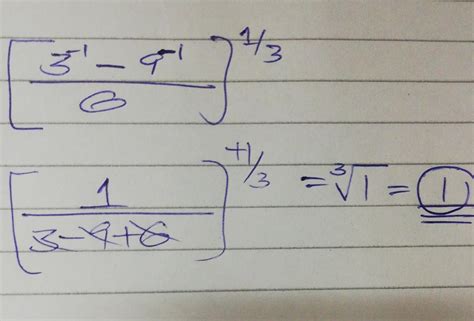 [ (3⁻¹ − 9⁻¹) / 6 ]^(1/3)
[ 1 / (3 − 9 + 6) ]^(+1/3) = ³√1 = 1